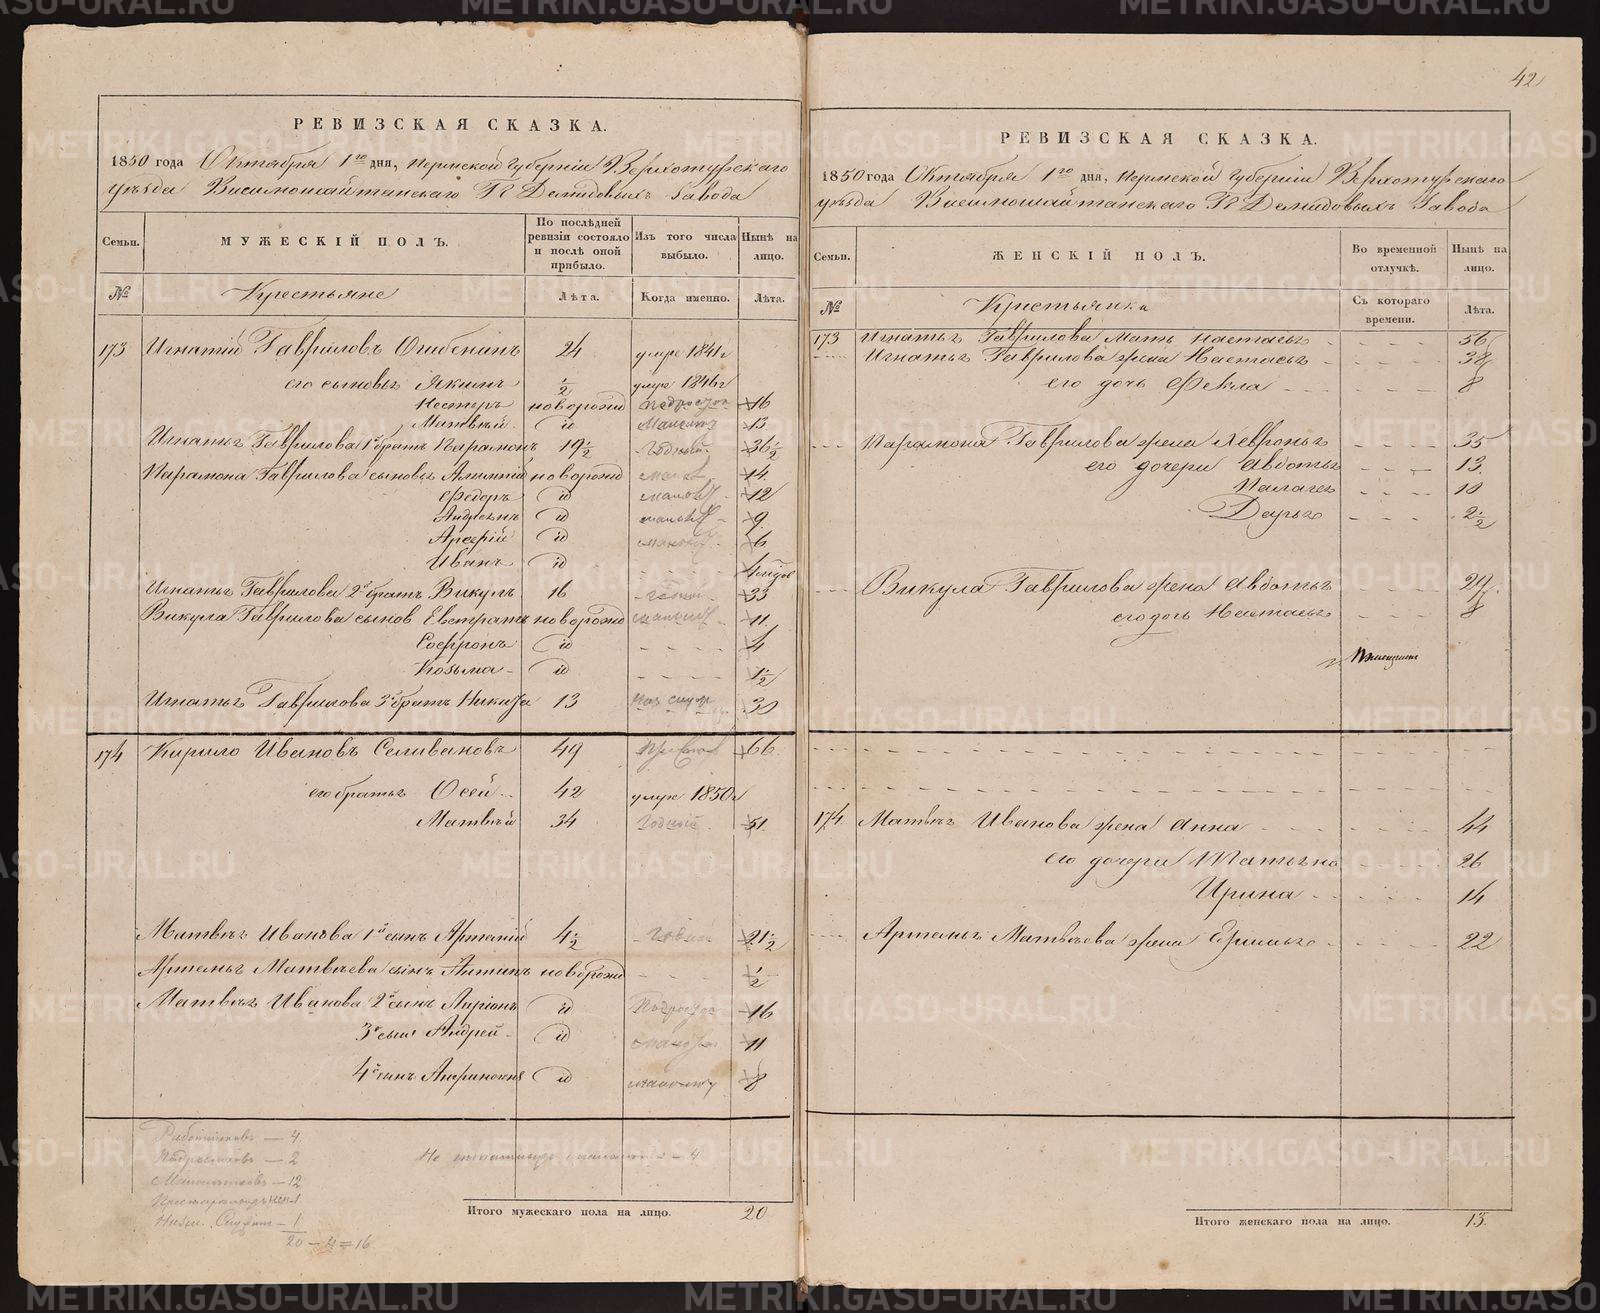 42
РЕВИЗСКАЯ СКАЗКА.
1850 года Октября 1го дня, Пермской Губерніи Верхотурскаго
уѣзда Висимошайтанскаго Г. Демидовыхъ Завода
Семьи.
МУЖЕСКІЙ ПОЛЪ.
По послѣдней ревизіи состояло и послѣ оной прибыло.
Изъ того числа выбыло.
Нынѣ на лицо.
№
Крестьяне
Лѣта.
Когда именно.
Лѣта.
173 Игнатій Гавриловъ Огибенинъ 24 умре 1841г
его сыновья Якимъ ½ умре 1846г
Несторъ новорожд подростокъ 16
Матвѣй id 13
Игнатья Гаврилова 1й братъ Парамонъ 19½ годный 36½
Парамона Гаврилова сыновья новорожд 14
Федоръ id 12
Андреянъ id 9
Арсеній id 6
Иванъ id
Игнатья Гаврилова 2й братъ Викулъ 16 33
Викула Гаврилова сынов Евстратъ новорожд 11
Софронъ id 4
Козьма id 1½
Игнатья Гаврилова 3й братъ Никита 13 30
174 Кирило Ивановъ Селивановъ 49 66
его братья Осей 42 умре 1850г
Матвѣй 34 Годный 51
Матвѣя Иванова 1й сынъ Артемій 4½ 21½
Артемья Матвѣева сынъ Антипъ новорожд ½
Матвѣя Иванова 2й сынъ Ларіонъ id Подростокъ 16
3й сынъ Андрей id 11
4й сынъ id 8
Работниковъ — 4
Подростковъ — 2
Малолѣтковъ — 12
1
20 — 4 = 16
Итого мужескаго пола на лицо. 20
РЕВИЗСКАЯ СКАЗКА.
1850 года Октября 1го дня, Пермской Губерніи Верхотурскаго
уѣзда Висимошайтанскаго Г. Демидовыхъ Завода
Семьи.
ЖЕНСКІЙ ПОЛЪ.
Во временной отлучкѣ.
Нынѣ на лицо.
№
Крестьянки
Съ котораго времени.
Лѣта.
173 Игнатья Гаврилова мать Настасья 56
Игнатья Гаврилова жена Настасья 38
его дочь Фекла 8
Парамона Гаврилова жена Хавронья 35
его дочери Авдотья 13
Палагея 10
Дарья 2½
Викула Гаврилова жена Авдотья 29
его дочь Настасья 8
174 Матвѣя Иванова жена Анна 44
его дочери Татьяна 26
Ирина 14
Артемья Матвѣева жена 22
Итого женскаго пола на лицо. 13.
METRIKI.GASO-URAL.RU